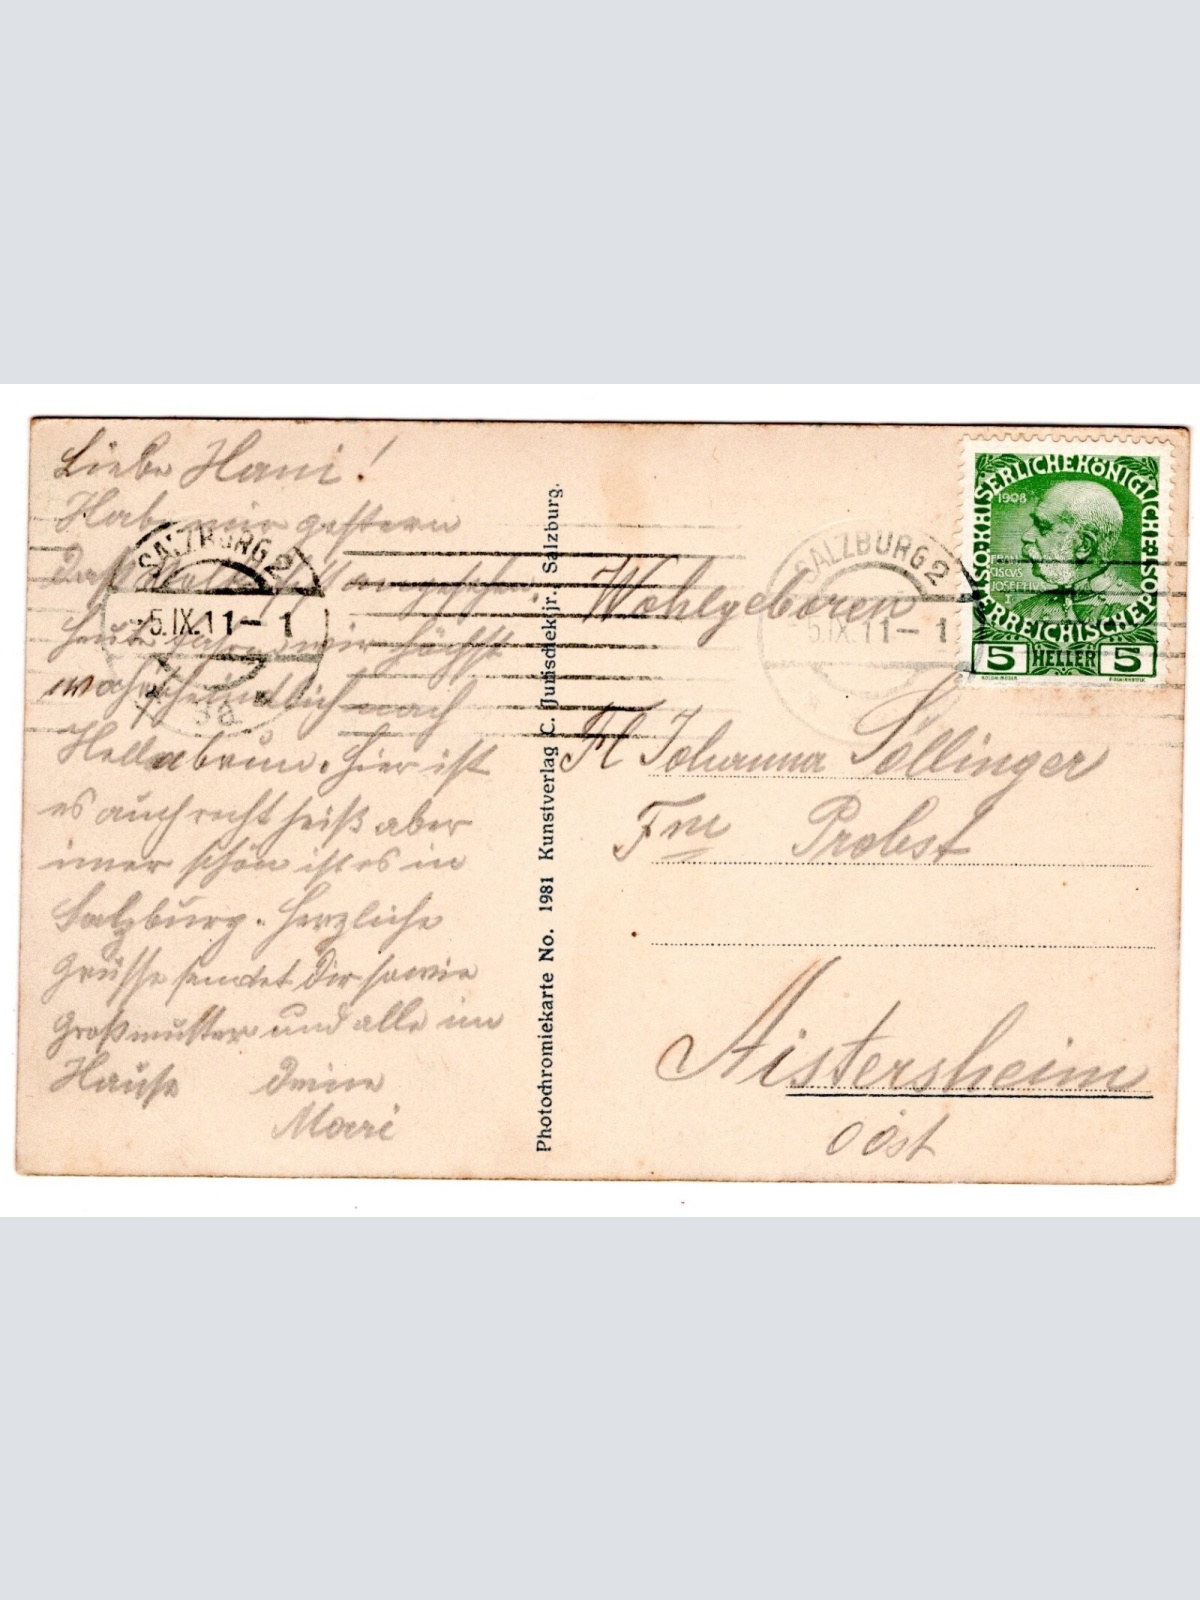 Liebe Hani!
Habe mir gestern
das Volksfest angesehen.
Heute fahren wir höchst
wahrscheinlich nach
Hellabrun. Hier ist
es auch recht heiß aber
imer schön ist es in
Salzburg. Herzliche
Grüsse sendet Dir sowie
Großmutter und alle im
Hause Deine
Mari
SALZBURG 2
5.IX.11-1
Photochromiekarte No. 1981 Kunstverlag C. Jurischek jr., Salzburg.
SALZBURG 2
5.IX.11-1
KAISERLICHE KÖNIGLICHE ÖSTERREICHISCHE POST
1908
FRANCISCVS JOSEPHVS I
5 HELLER 5
Wohlgeboren
Frl Johanna Söllinger
Probst
Aistersheim
OÖst